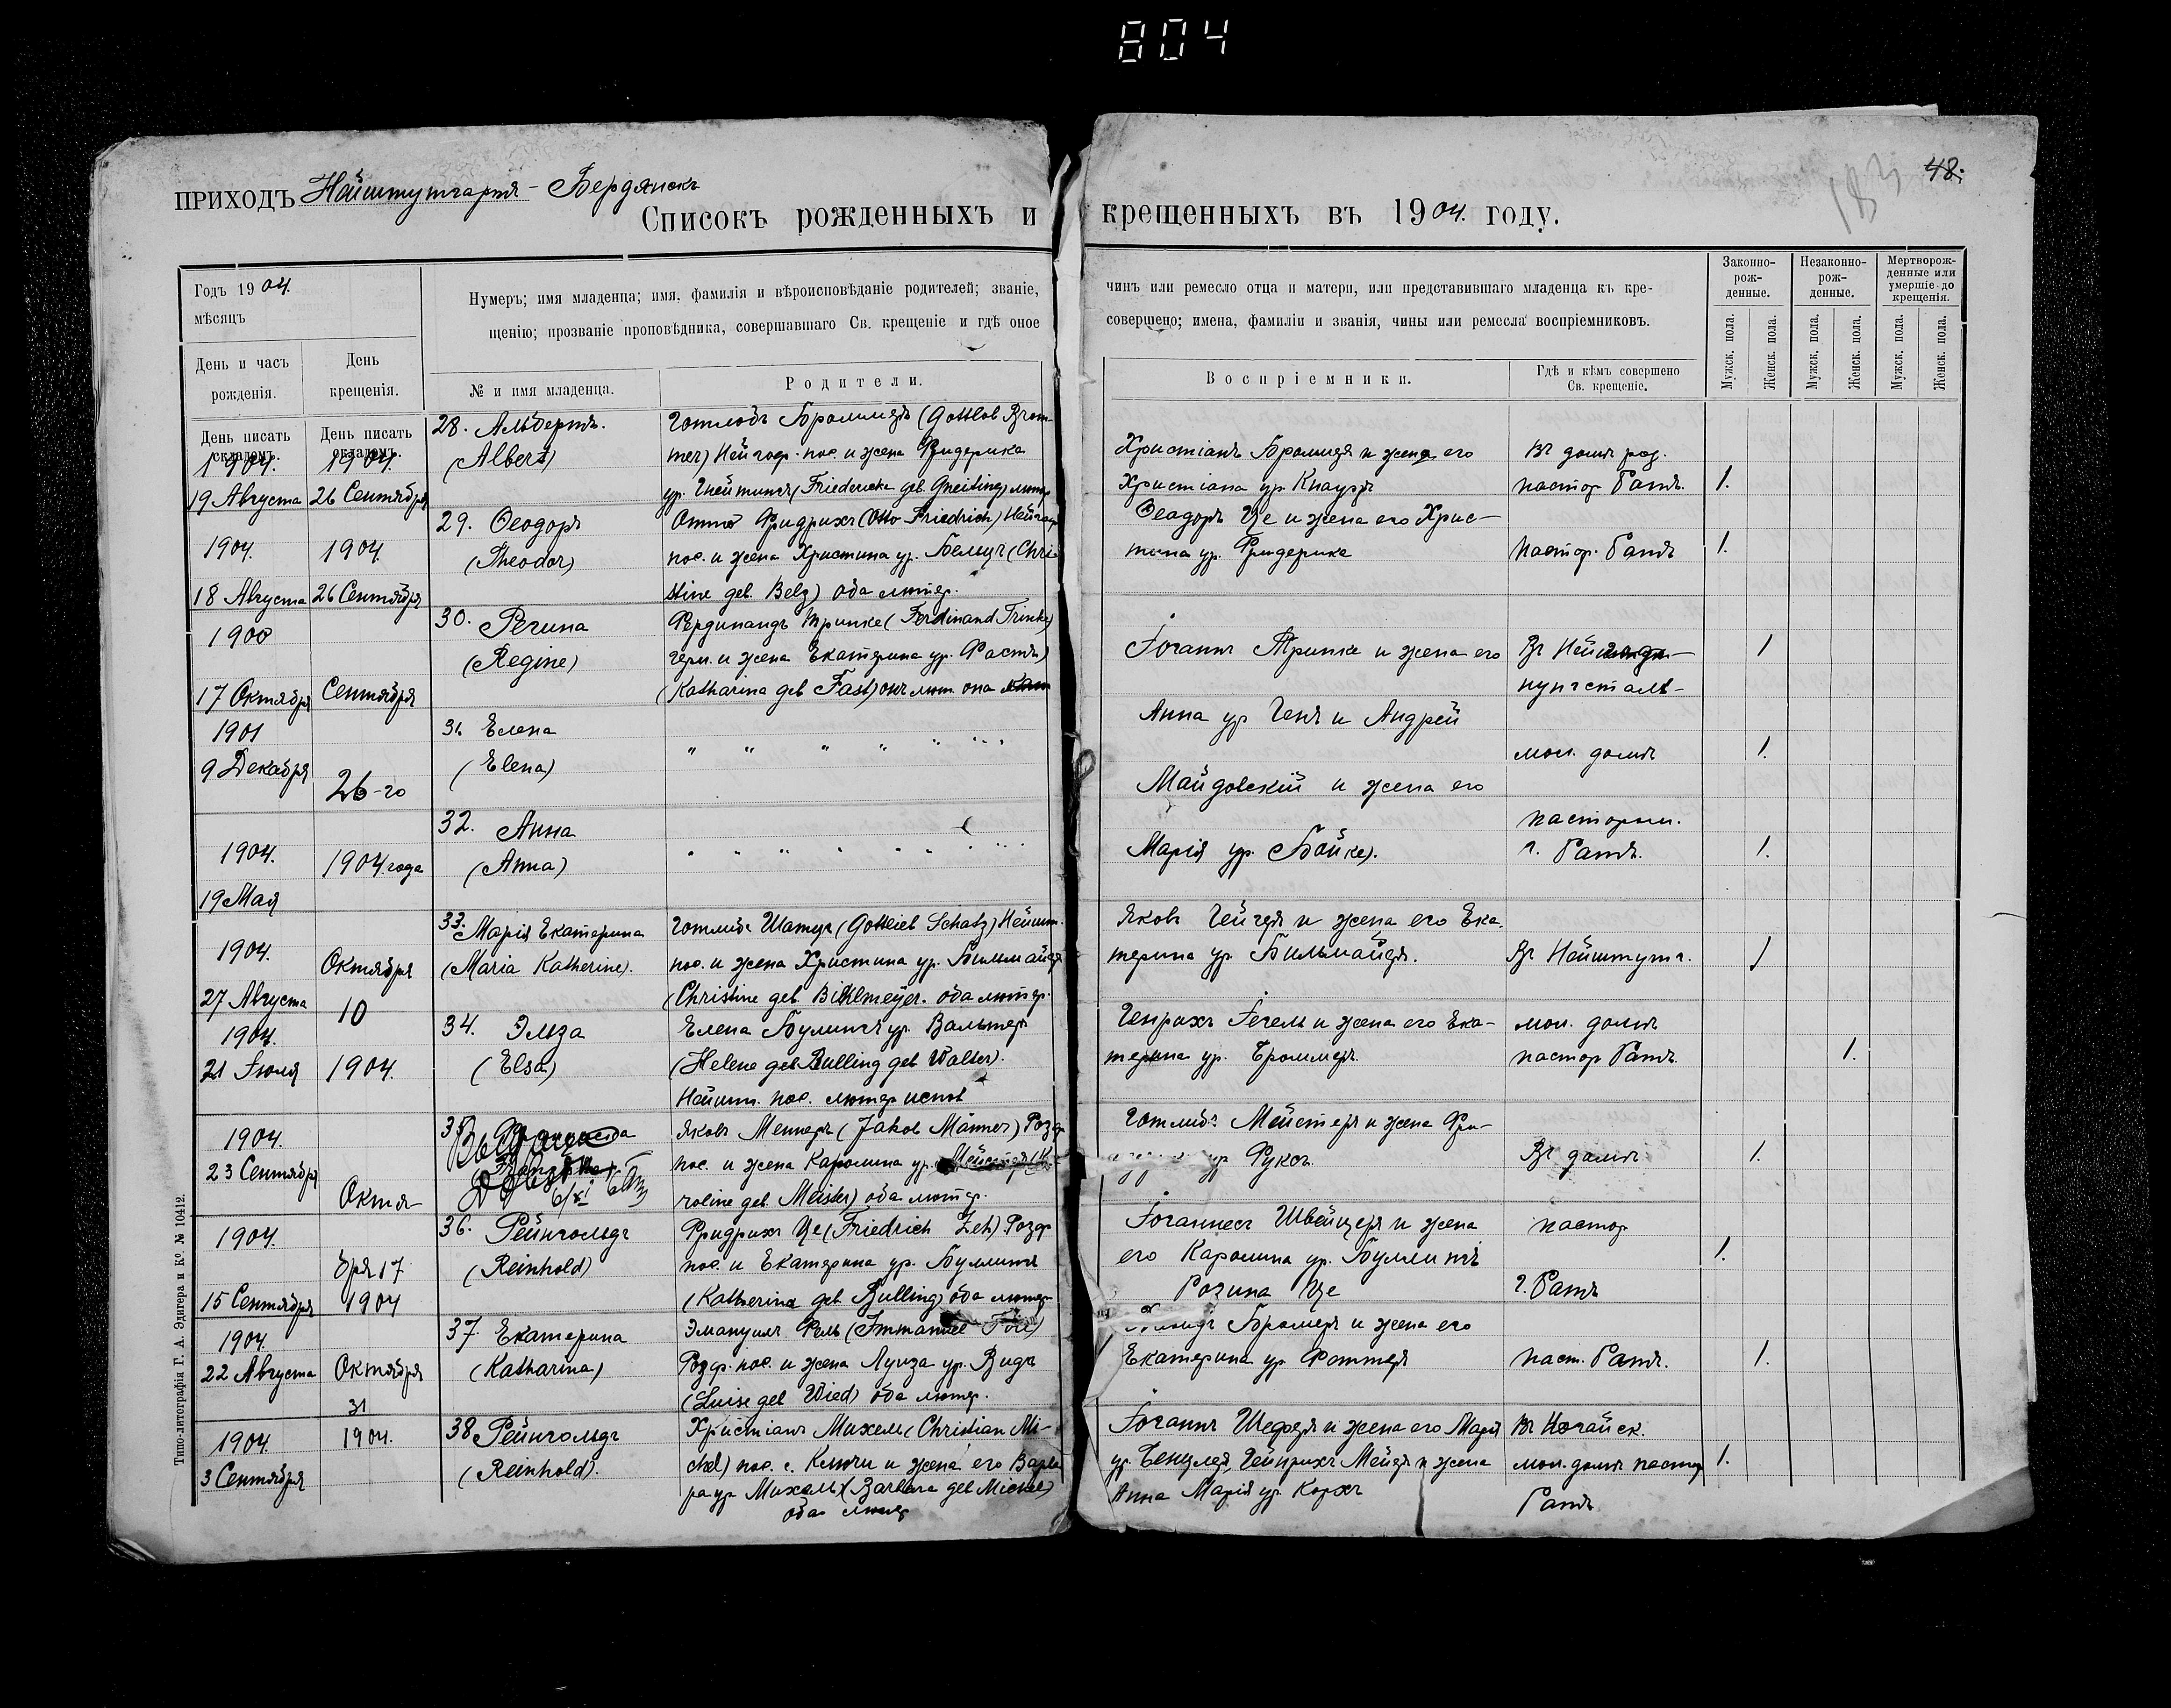 804
48.
183
ПРИХОДЪ Нейштутгартъ - Бердянскъ
Списокъ рожденныхъ и крещенныхъ въ 1904. году.
Годъ 1904.
мѣсяцъ
Нумеръ; имя младенца; имя, фамилія и вѣроисповѣданіе родителей; званіе,
щенію; прозваніе проповѣдника, совершавшаго Св. крещеніе и гдѣ оное
чинъ или ремесло отца и матери, или представившаго младенца къ кре-
совершено; имена, фамиліи и званія, чины или ремесла воспріемниковъ.
Законно-
рож-
денные.
Незаконно-
рож-
денные.
Мертворож-
денные или
умершіе до
крещенія.
День и часъ
рожденія.
День
крещенія.
№ и имя младенца.
Родители.
Воспріемники.
Гдѣ и кѣмъ совершено
Св. крещеніе.
Мужск. пола.
Женск. пола.
Мужск. пола.
Женск. пола.
Мужск. пола.
Женск. пола.
День писать
складомъ.
День писать
складомъ.
1904.
19 Августа
1904.
26 Сентября
28. Альбертъ.
(Albert)
Готлобъ Броммеръ (Gottlob Brom-
mer) Нейгоф. пос. и жена Фридерика
ур. Гнейтингъ (Friedericke geb. Gneiting) лютер
Христіанъ Бромеръ и жена его
Христіана ур. Кнауръ
въ домѣ род.
пастор Ратъ.
1.
1904.
18 Августа
1904.
26 Сентября
29. Ѳеодоръ
(Theodor)
Отто Фридрихъ (Otto Friedrich) Нейгоф
пос. и жена Христина ур. Бельцъ (Chri
stine geb. Belz) оба лютер.
Ѳеодоръ Це и жена его Хрис-
тина ур. Фридерике
пастор. Ратъ
1.
1900
17 Октября
Сентября
30. Регина
(Regine)
Фердинандъ Тринке (Ferdinand Trinke)
герм. и жена Екатерина ур. Фастъ)
(Katharina geb Fast) онъ лют. она
Іоганнъ Тринке и жена его
Въ Ней
1
1901
9 Декабря
26-го
31. Елена
(Elena)
" " " " " " "
Анна ур Генъ и Андрей
Майдовскій и жена его
мол. домѣ
1.
1904.
19 Мая
1904 года
32. Анна
(Anna)
" " " " " " "
Марія ур. Бойке).
пастором.
г. Ратъ.
1.
1904.
27 Августа
Октября
10
33. Марія Екатерина
(Maria Katherine).
Готлибъ Шатцъ (Gottlieb Schatz) Нейшт.
пос. и жена Христина ур. Бильмайеръ
(Christine geb. Bihlmeyer. оба лютер.
Яковъ Гейгеръ и жена его Ека
терина ур. Бильмайеръ.
Въ Нейштутг.
1
1904.
21 Іюля
1904.
34. Эльза
(Elsa)
Елена Булингъ ур. Вальтеръ
(Helene geb Bulling geb Walter).
Нейшт. пос. лютер испов
Генрихъ Гегель и жена его Ека-
терина ур. Броммеръ.
мол. домѣ
пастор Ратъ
1.
1904.
23 Сентября
Октя-
35.
Яковъ Меннеръ (Jakob Männer) Розф
пос. и жена Каролина ур. Мейстеръ (Ka-
roline geb. Meister) оба лютер.
Готлибъ Мейстеръ и жена Фри-
ур Фуксъ
Въ домѣ
1.
1904.
15 Сентября
бря 17
1904
36. Рейнгольдъ
(Reinhold)
Фридрихъ Це (Friedrich Zeh) Розф
пос. и Екатерина ур. Буллингъ
(Katherina geb Bulling) оба лютер
Іоганнесъ Швейцеръ и жена
его Каролина ур. Буллингъ
Розина Це
пастор
г. Ратъ
1.
1904.
22 Августа
Октября
31
37. Екатерина
(Katharina)
Эмануилъ Фель (Immanuel
Розф. пос. и жена Луиза ур. Видъ
(Luise geb Wied) оба лютер.
Бромеръ и жена его
Екатерина ур Роттеръ
паст. Ратъ.
1.
1904.
3 Сентября
1904.
38 Рейнгольдъ
(Reinhold).
Христіанъ Михель (Christian Mi-
chel) пос. с. Ключи и жена его Варва
ра ур Михель) (Barbara geb Michel)
оба лютер
Іоганнъ Шеферъ и жена его Марія
ур. Бенцлеръ, Гейнрихъ Мейеръ и жена
Анна Марія ур. Корхъ
Въ Ногайск.
мол. домѣ пастор
Ратъ
1.
Типо-литографія Г. А. Эдигера и Ко. № 10412.